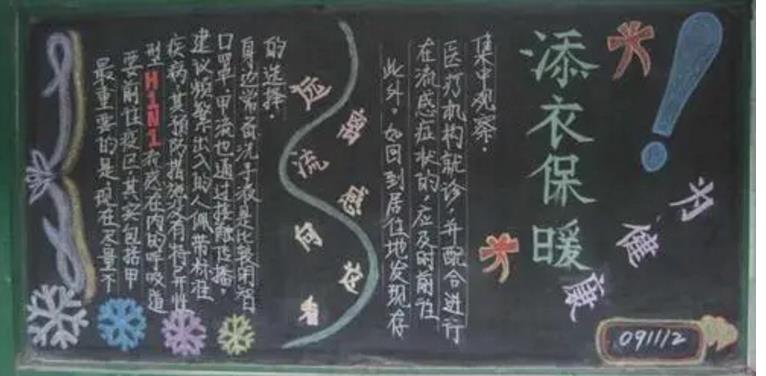 最重要的是现在尽量不
要前往疫区，其实包括甲
型H1N1流感在内的呼吸道
疾病，其预防措施没有特异性
建议频繁出入的人佩带标准
口罩，甲流也通过接触传播，
身边常备洗手液是比较明智
的选择．
远离流感
此外，如回到居住地发现存
在流感症状的，应及时前往
医疗机构就诊，并配合进行
集中观察．
添衣保暖
！
为健康
091112